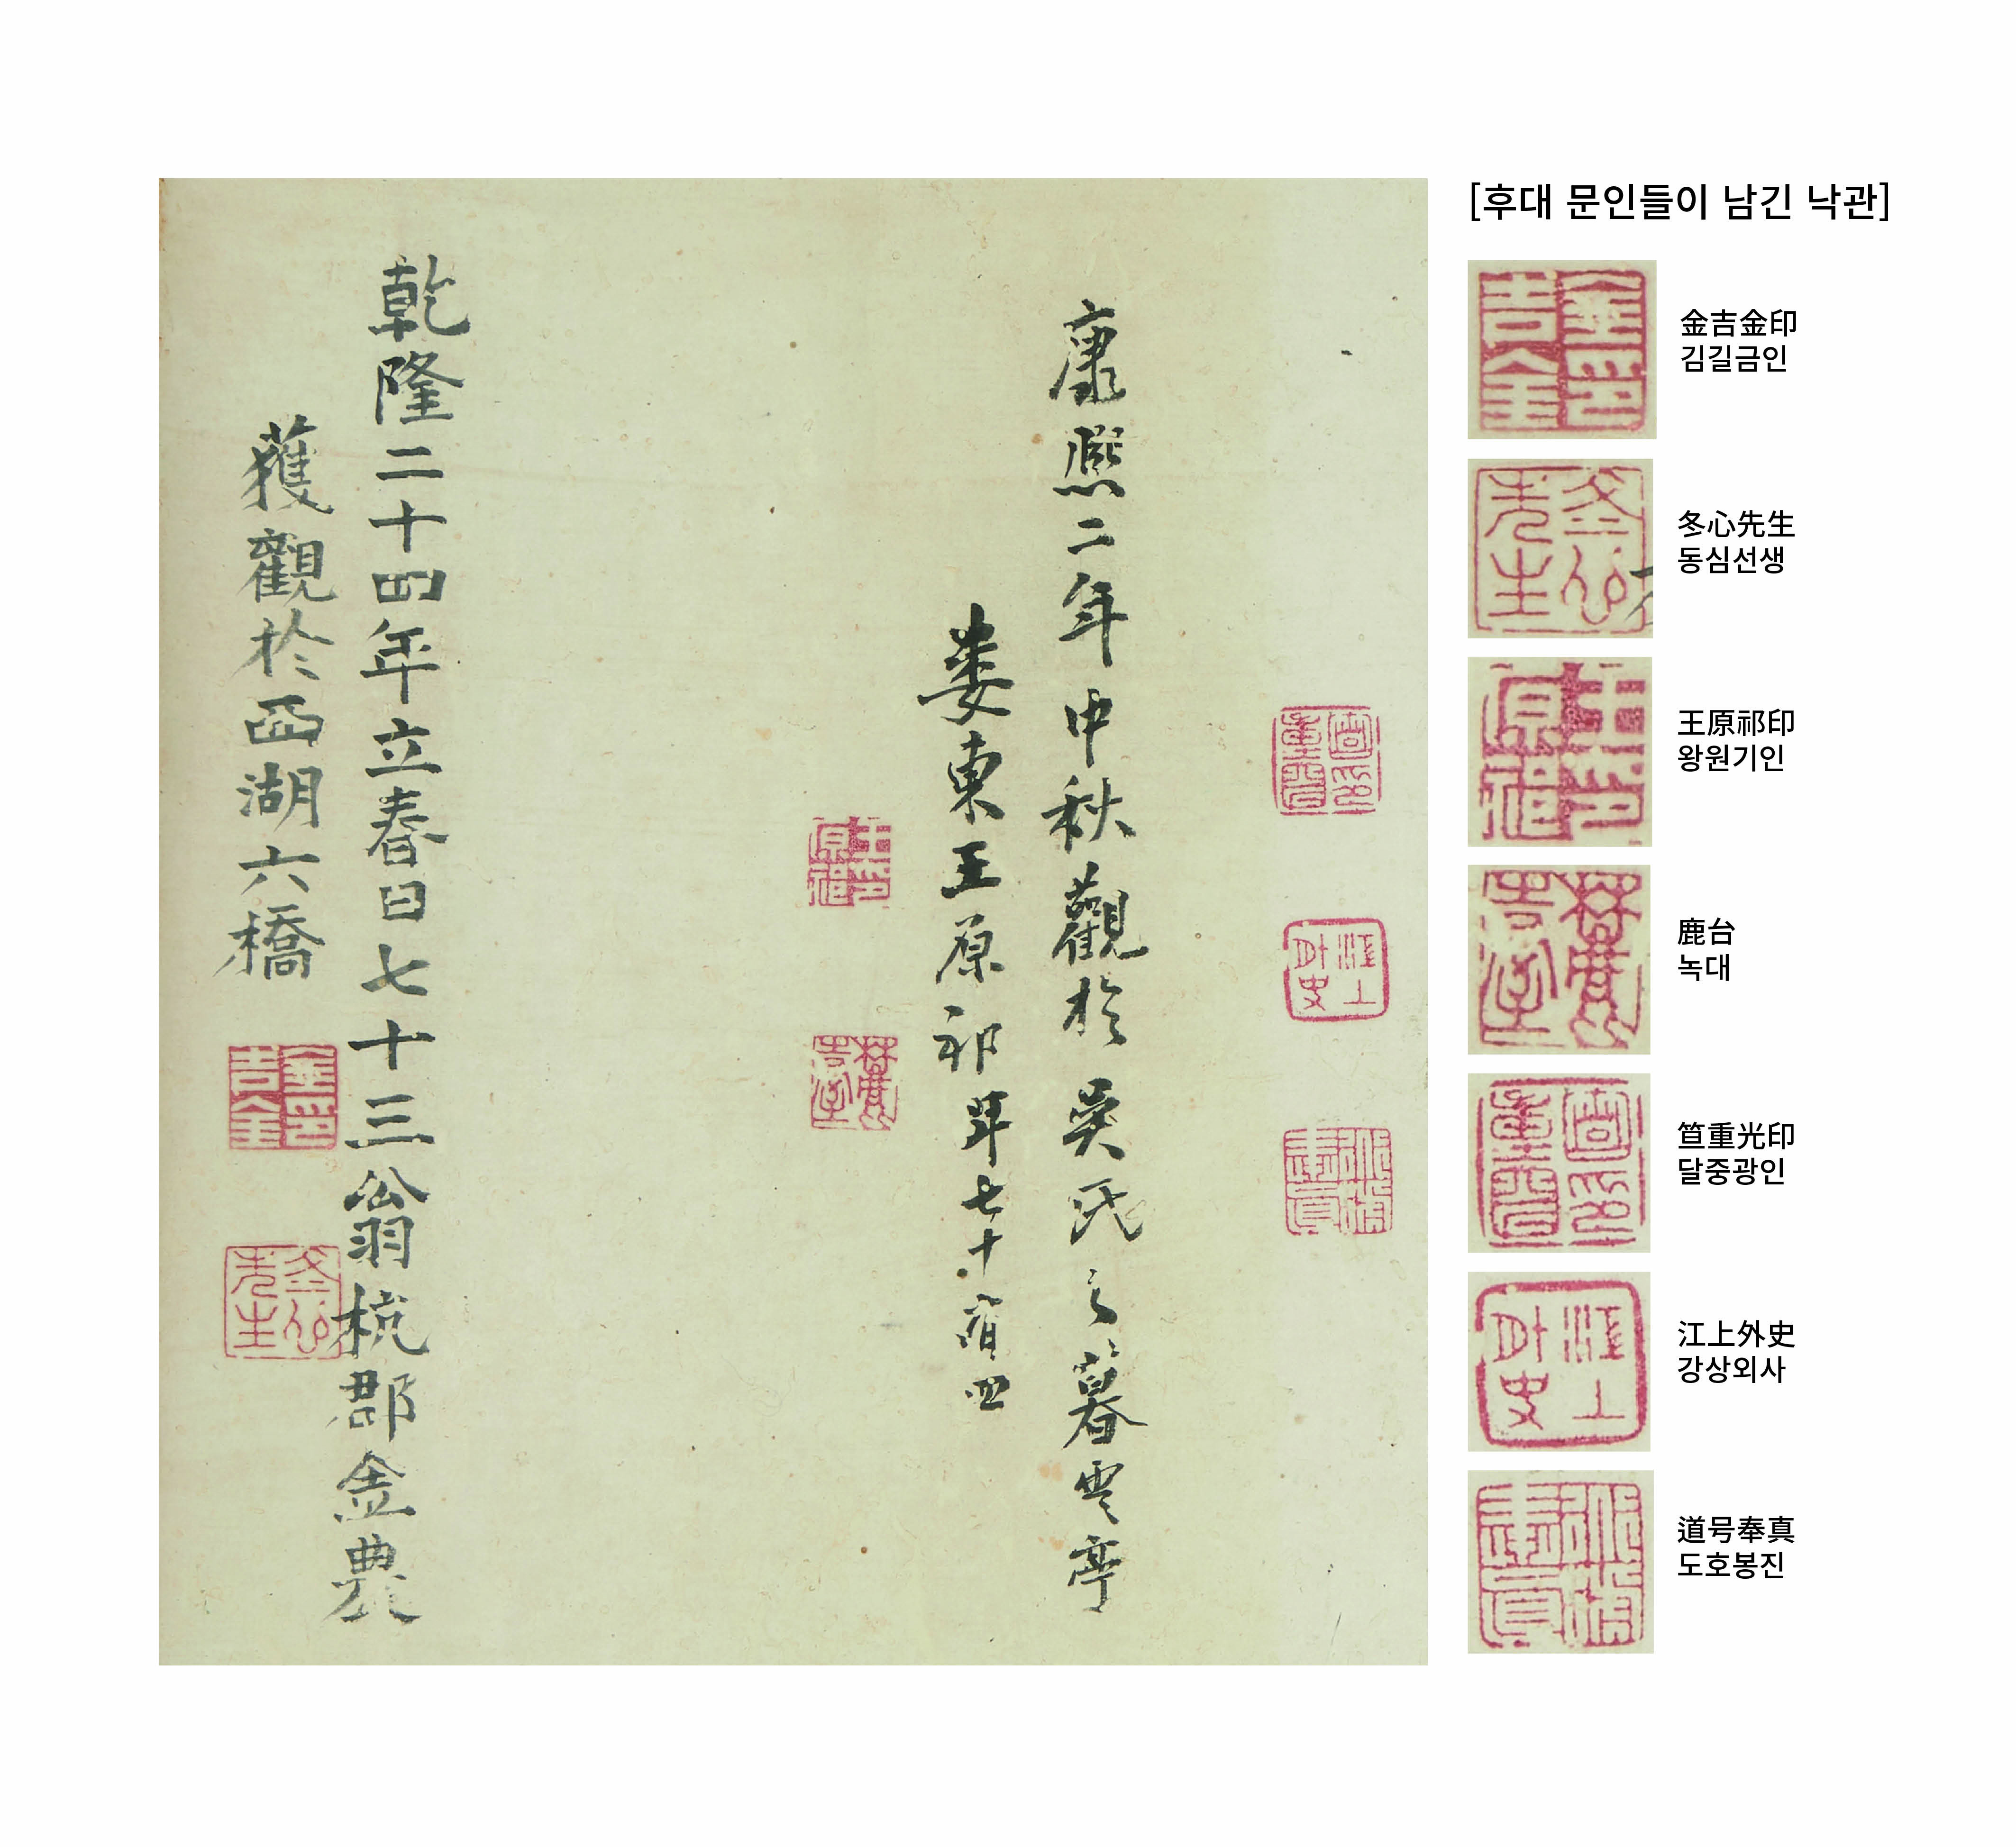 康熙二年中秋觀於吳氏之暮雲亭
婁東王原祁年七十有四
乾隆二十四年立春日七十三翁杭郡金農
獲觀於西湖六橋
[후대 문인들이 남긴 낙관]
金吉金印
김길금인
冬心先生
동심선생
王原祁印
왕원기인
鹿台
녹대
笪重光印
달중광인
江上外史
강상외사
道号奉真
도호봉진